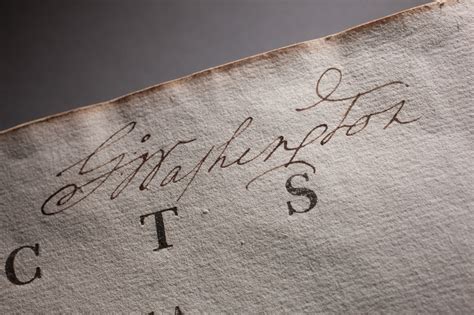 G:Washington
CTS